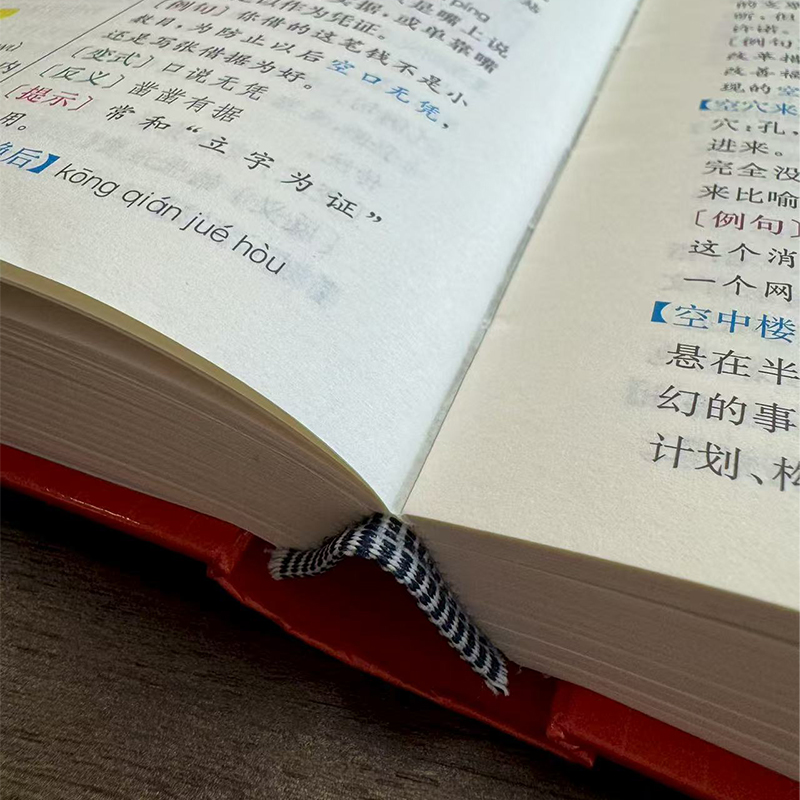 píng
是嘴上说
据，或单靠嘴
以作为凭证。
［例句］你借的这笔钱不是小
数目，为防止以后空口无凭，
还是写张借据为好。
［变式］口说无凭
［反义］凿凿有据
［提示］常和“立字为证”
用。
后】kōng qián jué hòu
内
许诺。
［例句
改革措
改善福
现的空
【空穴来
穴：孔，
进来。
完全没
来比喻
［例句］
这个消
一个网
【空中楼
悬在半
幻的事
计划、构